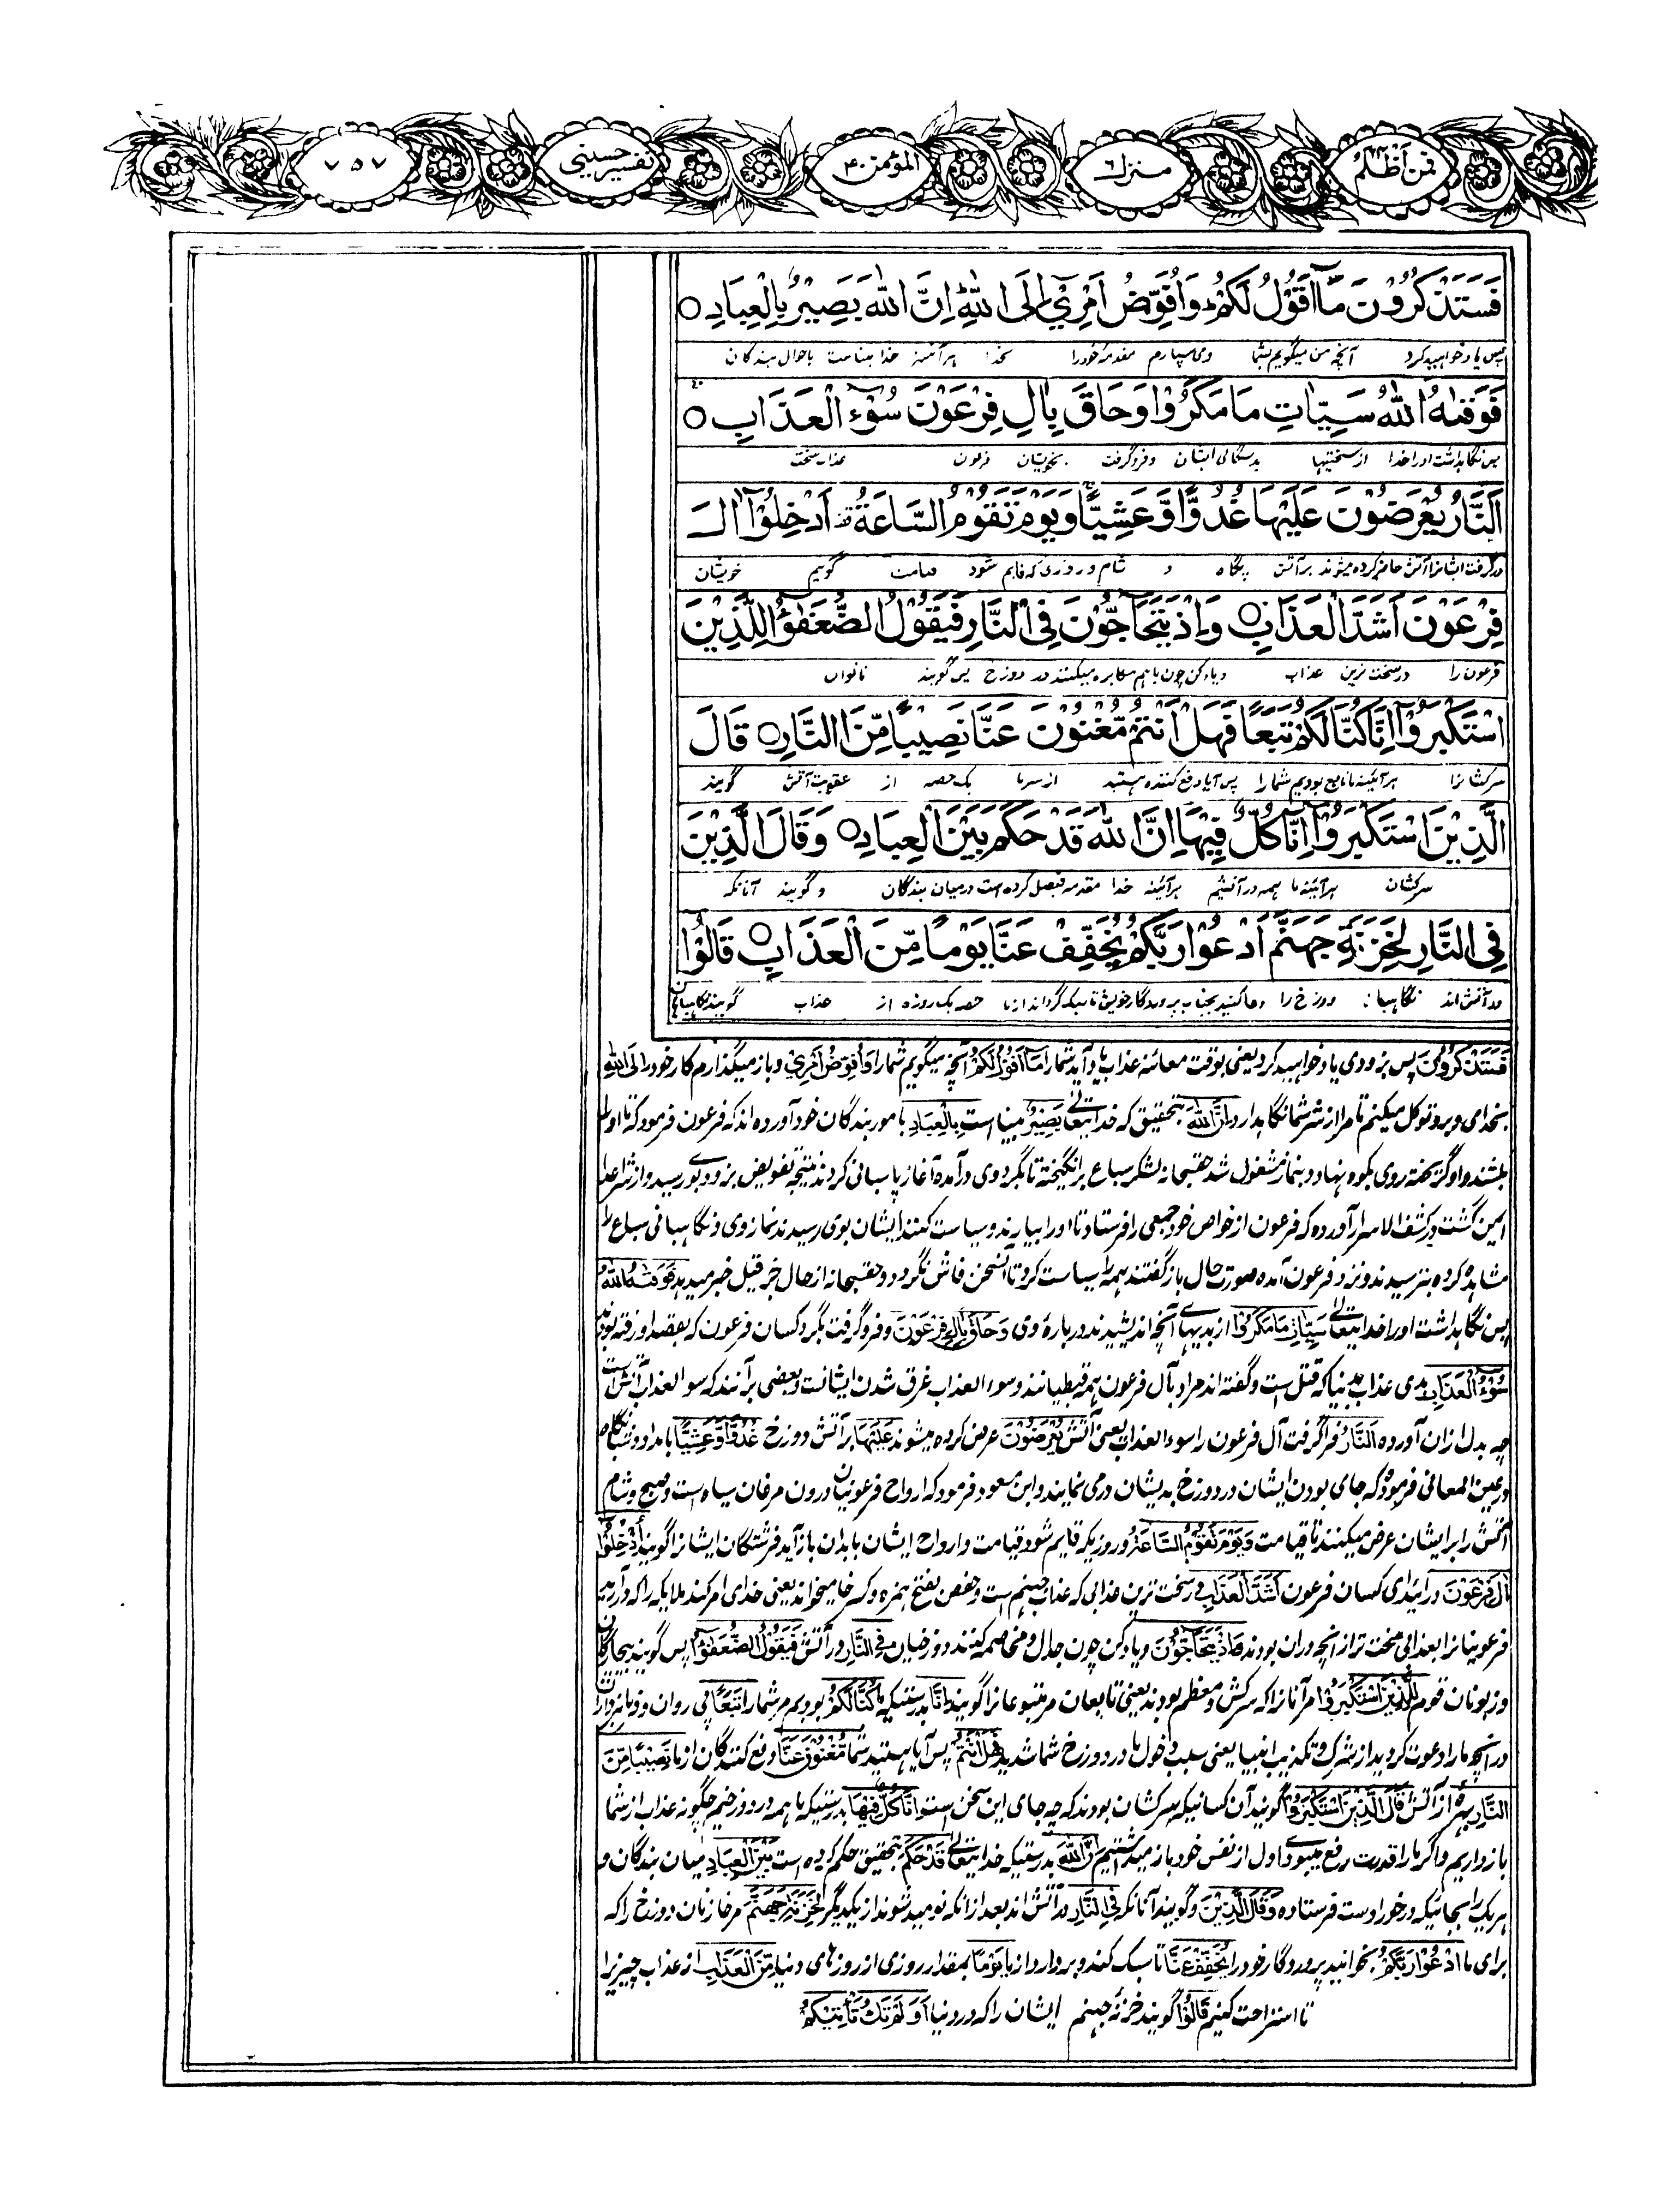 فمن أظلم منزل ٦ المؤمن ٤٠ تفسير حسيني ٧٥٧
فَسَتَذْكُرُوْنَ مَآ اَقُوْلُ لَكُمْ وَاُفَوِّضُ اَمْرِيْٓ اِلَى اللّٰهِ اِنَّ اللّٰهَ بَصِيْرٌۢ بِالْعِبَادِ ○
پس یاد خواهید کرد آنچه من میگویم بشما و می سپارم مقدمهٔ خود را بخدا هر آئینه خدا بیناست باحوال بندگان
فَوَقٰىهُ اللّٰهُ سَيِّاٰتِ مَا مَكَرُوْا وَحَاقَ بِاٰلِ فِرْعَوْنَ سُوْٓءُ الْعَذَابِ ○
پس نگاهداشت او را خدا از سختیها بدسگالی ایشان و فرو گرفت بخویشان فرعون عذاب سخت
اَلنَّارُ يُعْرَضُوْنَ عَلَيْهَا غُدُوًّا وَّعَشِيًّا وَيَوْمَ تَقُوْمُ السَّاعَةُ اَدْخِلُوْٓا اٰلَ
در گرفت ایشانرا آتش حاضر کرده میشوند بر آتش پگاه و شام و روزی که قایم شود قیامت گوئیم خویشان
فِرْعَوْنَ اَشَدَّ الْعَذَابِ ○ وَاِذْ يَتَحَآجُّوْنَ فِى النَّارِ فَيَقُوْلُ الضُّعَفٰٓؤُا لِلَّذِيْنَ
فرعون را در سخت ترین عذاب و یاد کن چون باهم مکابره میکنند در دوزخ پس گویند ناتوان
اسْتَكْبَرُوْٓا اِنَّا كُنَّا لَكُمْ تَبَعًا فَهَلْ اَنْتُمْ مُّغْنُوْنَ عَنَّا نَصِيْبًا مِّنَ النَّارِ ○ قَالَ
سرکشانرا هر آئینه ما تابع بودیم شما را پس آیا دفع کننده هستید از سر ما یک حصه از عقوبت آتش گویند
الَّذِيْنَ اسْتَكْبَرُوْٓا اِنَّا كُلٌّ فِيْهَآ اِنَّ اللّٰهَ قَدْ حَكَمَ بَيْنَ الْعِبَادِ ○ وَقَالَ الَّذِيْنَ
سرکشان هر آئینه ما همه در آتشیم هر آئینه خدا مقدمه فیصل کرده است درمیان بندگان و گویند آنانکه
فِى النَّارِ لِخَزَنَةِ جَهَنَّمَ ادْعُوْا رَبَّكُمْ يُخَفِّفْ عَنَّا يَوْمًا مِّنَ الْعَذَابِ ○ قَالُوْٓا
در آتش اند نگاهبانان دوزخ را دعا کنید بجناب پروردگار خویش تا سبک گرداند از ما حصه یک روزه از عذاب گویند نگاهبانان
فَسَتَذْكُرُوْنَ پس بزودی یاد خواهید کرد یعنی بوقت معائنه عذاب یاد آید شما را مَآ اَقُوْلُ لَكُمْ آنچه میگویم شما را وَاُفَوِّضُ اَمْرِيْ و باز میگذارم کار خود را اِلَى اللّٰهِ
بخدای و برو توکل میکنم تا مرا از شر شما نگاهدارد اِنَّ اللّٰهَ بتحقیق که خدایتعالی بَصِيْرٌ بینا است بِالْعِبَادِ بامور بندگان خود آورده اند که فرعون فرمود که تا او را
بکشند و او گریخته روی بکوه نهاد و بنماز مشغول شد حقسبحانه لشکر سباع برانگیخته تا بگرد وی درآمده آغاز پاسبانی کردند نتیجه تفویض بزودی بوی رسید و از شر اعدا
ایمن گشت در کشف الاسرار آورده که فرعون از خواص خود جمعی را فرستاد تا او را بیارند و سیاست کنند ایشان بوی رسیدند نماز وی و نگاهبانی سباع را
مشاهده کرده بترسیدند و نزد فرعون آمده صورت حال باز گفتند همه را سیاست کرد تا آن سخن فاش نگردد و حقسبحانه از حال خربیل خبر میدهد فَوَقٰىهُ اللّٰهُ
پس نگاهداشت او را خدایتعالی سَيِّاٰتِ مَا مَكَرُوْا از بدیهای آنچه اندیشیدند درباره وی وَحَاقَ بِاٰلِ فِرْعَوْنَ و فرو گرفت بگرد کسان فرعون که بقصد او رفته بودند
سُوْٓءُ الْعَذَابِ بدی عذاب بدنیا که قتل است و گفته اند مراد بآل فرعون همه قبطیانند و سوء العذاب غرق شدن ایشانست و بعضی برآنند که سوء العذاب آتش است
چه بدل ازان آورده اَلنَّارُ فرا گرفت آل فرعون را سوء العذاب یعنی آتش يُعْرَضُوْنَ عرض کرده میشوند عَلَيْهَا بر آتش دوزخ غُدُوًّا وَّعَشِيًّا بامداد و شبانگاه
در عین المعانی فرموده که جای بودن ایشان در دوزخ بدیشان درمی نمایند و ابن مسعود فرمود که ارواح فرعونیان درون مرغان سیاه است و صبح و شام
آتش را بر ایشان عرض میکنند تا قیامت وَيَوْمَ تَقُوْمُ السَّاعَةُ و روزیکه قایم شود قیامت و ارواح ایشان بابدان باز آید فرشتگان ایشانرا گویند اَدْخِلُوْٓا
اٰلَ فِرْعَوْنَ درآئید ای کسان فرعون اَشَدَّ الْعَذَابِ در سخت ترین عذابی که عذاب جهنم است و حفص بفتح همزه و کسر خا میخواند یعنی خدای امر کند ملایکه را که درآرید
فرعونیانرا بعذابی سخت تر از آنچه دران بودند وَاِذْ يَتَحَآجُّوْنَ و یاد کن چون جدل و مخاصمه کنند دوزخیان فِى النَّارِ در آتش فَيَقُوْلُ الضُّعَفٰٓؤُا پس گویند بیچارگان
و زبونان قوم لِلَّذِيْنَ اسْتَكْبَرُوْٓا مر آنانرا که سرکش و معظم بودند یعنی تابعان مر متبوعانرا گویند اِنَّا بدرستیکه ما كُنَّا لَكُمْ بودیم مر شما را تَبَعًا پی روان و فرمانبرداران
در آنچه ما را دعوت کردید از شرک و تکذیب انبیا یعنی سبب دخول ما در دوزخ شما شدید فَهَلْ اَنْتُمْ پس آیا هستید شما مُّغْنُوْنَ عَنَّا دفع کنندگان از ما نَصِيْبًا مِّنَ
النَّارِ بهرهٔ از آتش قَالَ الَّذِيْنَ اسْتَكْبَرُوْٓا گویند آن کسانیکه سرکشان بودند که چه جای این سخن است اِنَّا كُلٌّ فِيْهَا بدرستیکه ما همه در دوزخیم چگونه عذاب از شما
باز داریم و اگر ما را قدرت رفع میبودی اول از نفس خود باز میداشتیم اِنَّ اللّٰهَ بدرستیکه خدایتعالی قَدْ حَكَمَ بتحقیق حکم کرده است بَيْنَ الْعِبَادِ میان بندگان و
هر یک را بجائیکه در خور اوست فرستاده وَقَالَ الَّذِيْنَ و گویند آنانکه فِى النَّارِ در آتش اند بعد از آنکه نومید شوند از یکدیگر لِخَزَنَةِ جَهَنَّمَ مر خازنان دوزخ را که
برای ما ادْعُوْا رَبَّكُمْ بخوانید پروردگار خود را يُخَفِّفْ عَنَّا تا سبک کند و بردارد از ما يَوْمًا بمقدار روزی از روزهای دنیا مِّنَ الْعَذَابِ از عذاب چیزیرا
تا استراحت کنیم قَالُوْا گویند خزنهٔ جهنم ایشان را که در دنیا اَوَلَمْ تَكُ تَأْتِيْكُمْ